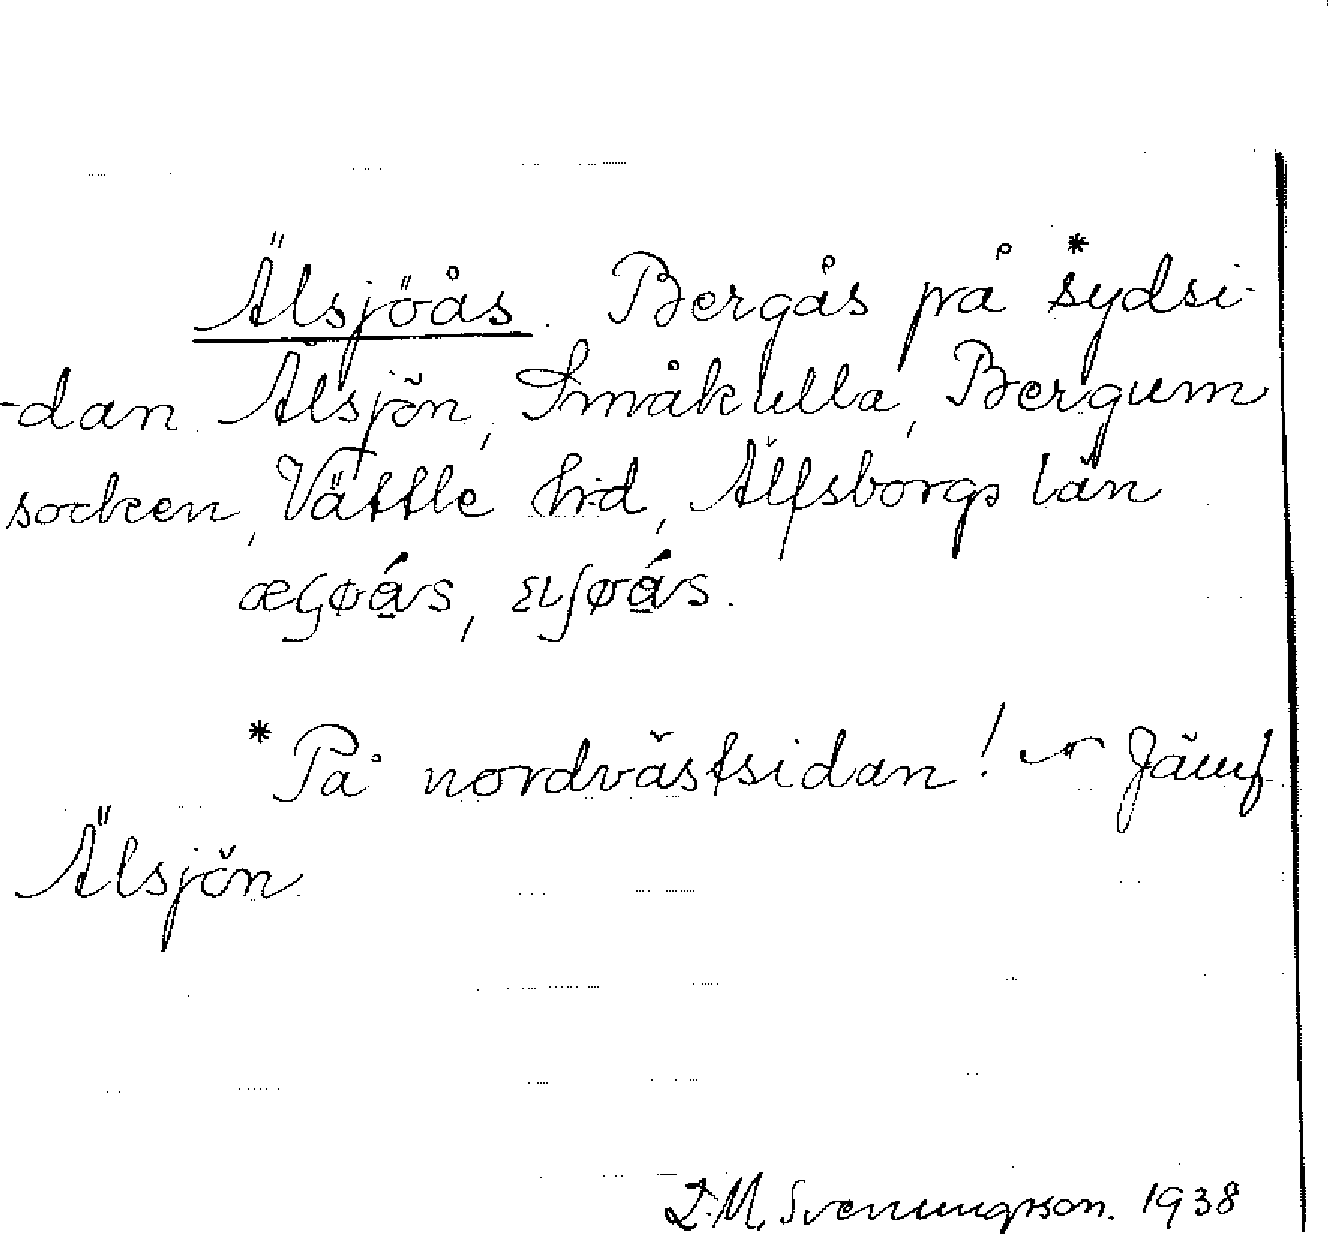 Älsjöås. Bergås på *sydsi-
-dan Älsjön, Småkulla, Bergum
socken, Vättle hd, Älfsborgs län
* På nordvästsidan! Jämf.
Älsjön
Svenungsson. 1938